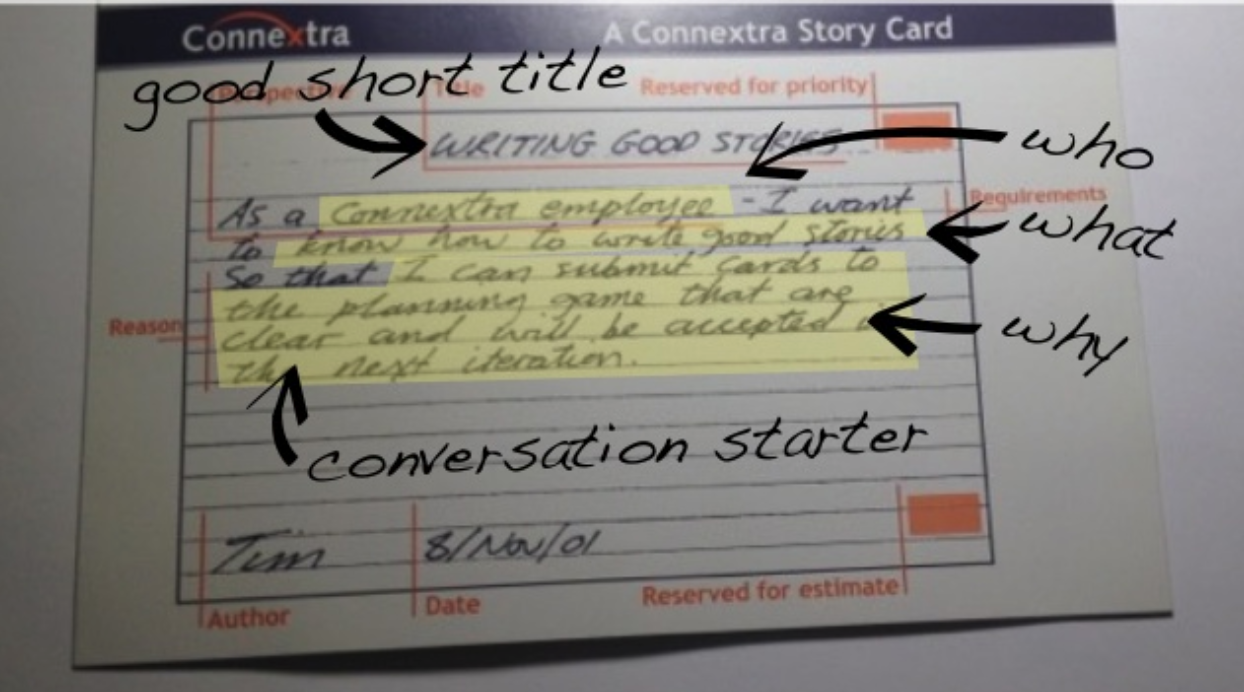 Connextra
A Connextra Story Card
good short title
Title
Reserved for priority
WRITING GOOD STORIES
who
Requirements
As a Connextra employee - I want
to know how to write good stories
what
So that I can submit cards to
the planning game that are
Reason
clear and will be accepted
why
the next iteration.
conversation starter
Tim
8/Nov/01
Author
Date
Reserved for estimate